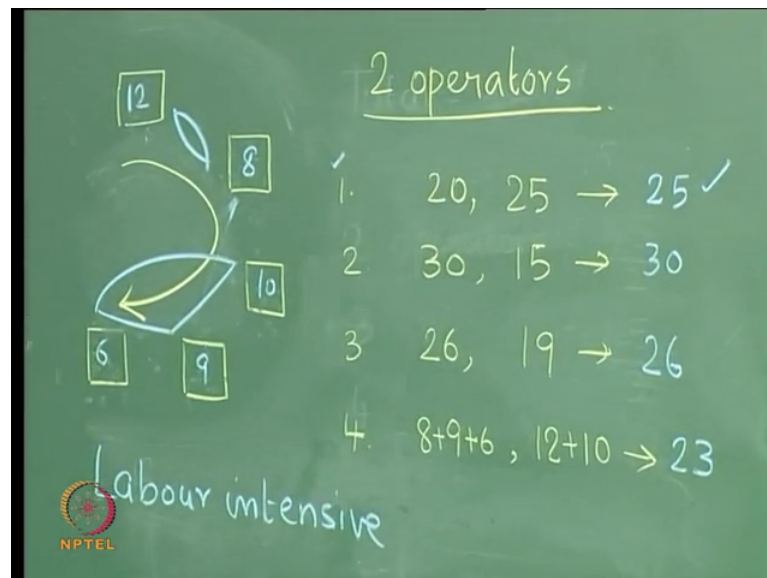 12
8
10
9
6
2 operators
1. 20, 25 → 25 ✓
2 30, 15 → 30
3 26, 19 → 26
4. 8+9+6, 12+10 → 23
Labour intensive
NPTEL